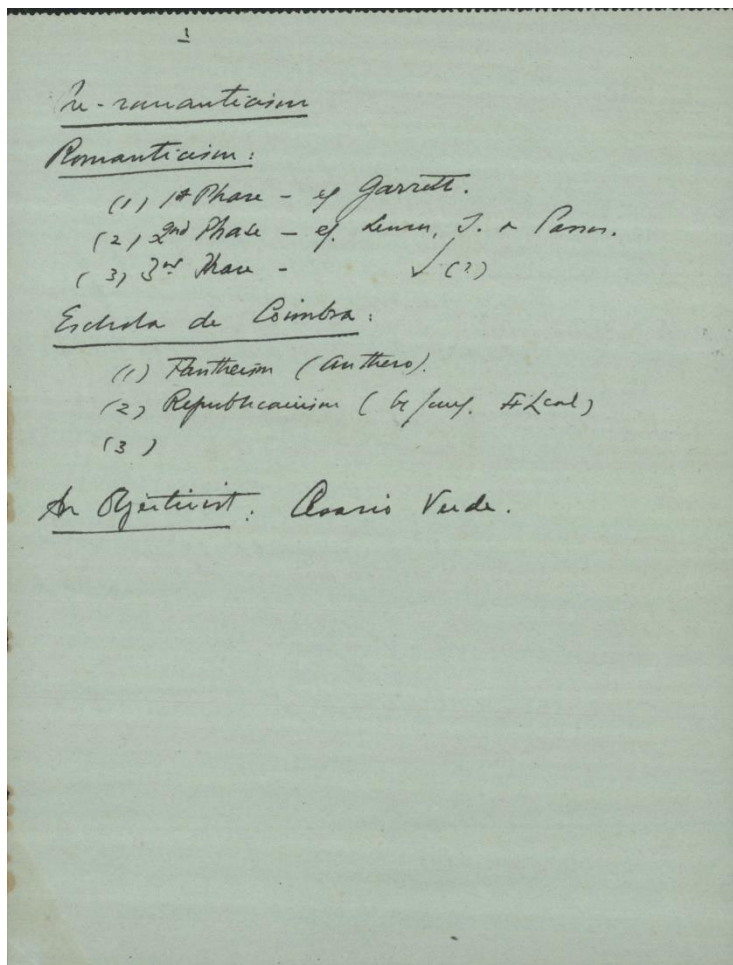 1
Pre-romanticism
Romanticism:
(1) 1st Phase – eg Garrett.
(2) 2nd Phase – eg. Lemos, S. de Passos.
(3) 3rd Phase – (?)
Eschola de Coimbra:
(1) Pantheism (Anthero).
(2) Republicanism (
(3 )
An Objectivist: Cesario Verde.